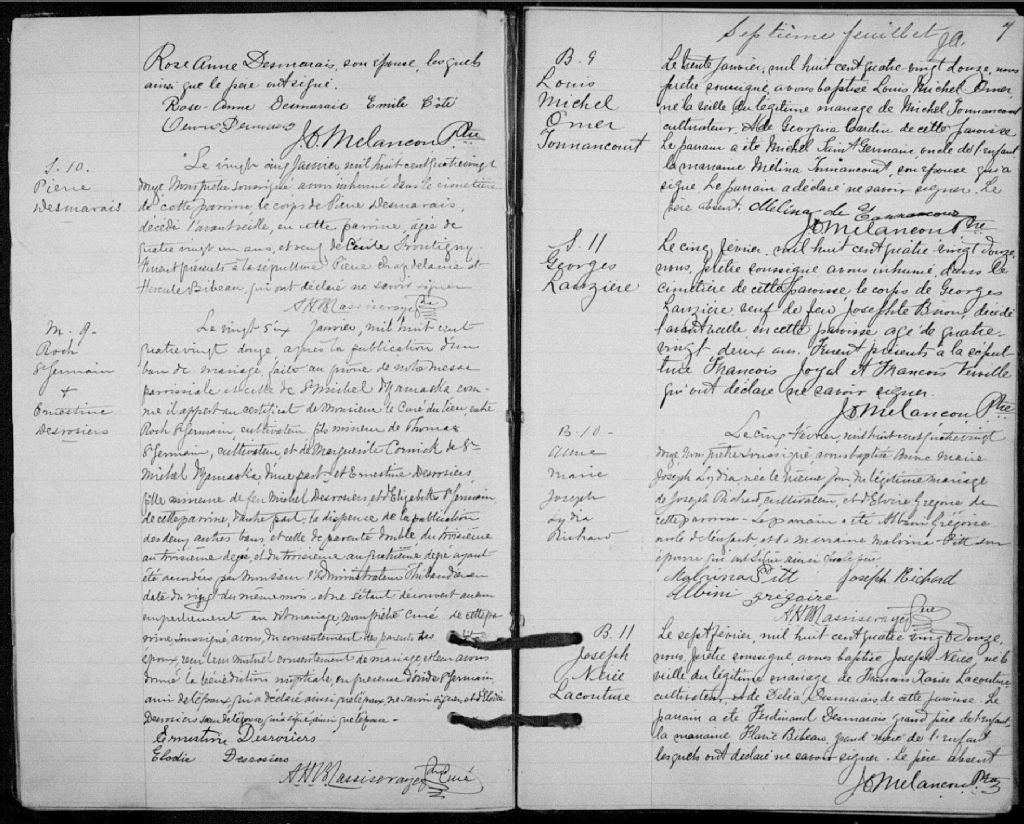 Rose Anne Desmarais, son épouse, lesquels
ainsi que le père ont signé.
Rose-Anne Desmarais Emile Côté
J.O. Melancon Ptre
S. 10.
Pierre
Desmarais
Le vingt cinq Janvier mil huit cent quatre vingt
douze Nous prêtre soussigné, avons inhumé dans le cimetière
de cette paroisse le corps de Pierre Desmarais,
décédé l'avant veille, en cette paroisse, âgé de
quatre vingt un ans, et veuf de Cécile Frontigny
Furent présents à la sépulture Pierre Chapdelaine et
Hercule Bibeau, qui ont déclaré ne savoir signer
M. 9.
Roch
St Germain
+
Ernestine
Desrosiers
Le vingt six Janvier, mil huit cent
quatre vingt douze, après la publication d'un
ban de mariage, faite au prône de notre messe
paroissiale et celle de St Michel d'Yamaska com-
me il appert au certificat de Monsieur le Curé du lieu, entre
Roch St Germain, cultivateur fils mineur de Thomas
St Germain, cultivateur, et de Marguerite Cornick de St
Michel d'Yamaska, d'une part, et Ernestine Desrosiers,
fille mineure de feu Michel Desrosiers, et d'Elizabeth St Germain
de cette paroisse, d'autre part; la dispense de la publication
des deux autres bans, et celle de parenté double du troisième
au troisième degré, et du troisième au quatrième degré ayant
été accordées par Monsieur l'Administrateur en
date du vingt du même mois et ne s'étant découvert aucun
empêchement au dit mariage, Nous prêtre Curé de cette pa-
roisse soussigné avons, du consentement des parents des
époux, reçu leur mutuel consentement de mariage, et leur avons
donné la bénédiction nuptiale, en présence d' St Germain,
ami de l'époux, qui a déclaré ainsi que l'époux ne savoir signer, et d'Elodie
Desrosiers soeur de l'épouse, qui a signé ainsi que l'épouse
Ernestine Desrosiers
Elodie Desrosiers
Septième feuillet
7
B. 9
Louis
Michel
Omer
Tonnancourt
Le trente Janvier, mil huit cent quatre vingt douze, nous
prêtre soussigné, avons baptisé Louis Michel Omer,
né la veille du légitime mariage de Michel Tonnancourt
cultivateur, & de Georgina Cardin de cette paroisse
Le parrain a été Michel Saint Germain, oncle de l'enfant
la marraine Melina Tonnancourt, son épouse qui a
signé. Le parrain a déclaré ne savoir signer. Le
père absent. Melina de Tonnancour
J.O. Melancon Ptre
S. 11
Georges
Lauzière
Le cinq février, mil huit cent quatre vingt douze,
nous, prêtre soussigné avons inhumé, dans le
cimetière de cette paroisse le corps de Georges
Lauzière, veuf de feu Josephte, décédé
l'avant veille en cette paroisse âgé de quatre-
vingt deux ans. Furent présents à la sépul-
ture François Joyal et François Verville
qui ont déclaré ne savoir signer.
J.O. Melancon Ptre
B. 10 -
Anne
Marie
Joseph
Lydia
Richard
Le cinq Février, mil huit cent quatre vingt
douze, Nous prêtre soussigné avons baptisé Anne Marie
Joseph Lydia, née le même jour, du légitime mariage
de Joseph Richard, cultivateur, et d'Elvire Grégoire de
cette paroisse - Le parrain a été Albini Grégoire
oncle de l'enfant et la marraine Malvina Pitt son
épouse qui ont signé ainsi que le père
Malvina Pitt Joseph Richard
Albini grégoire
B. 11
Joseph
Nérée
Lacouture
Le sept février, mil huit cent quatre vingt douze,
nous, prêtre soussigné, avons baptisé Joseph Nérée, né la
veille du légitime mariage de François Xavier Lacouture
cultivateur, & de Délia Desmarais de cette paroisse. Le
parrain a été Ferdinand Desmarais grand père de l'enfant
la marraine Flavie Bibeau, grand mère de l'enfant
lesquels ont déclaré ne savoir signer. Le père absent
J.O. Melancon Ptre